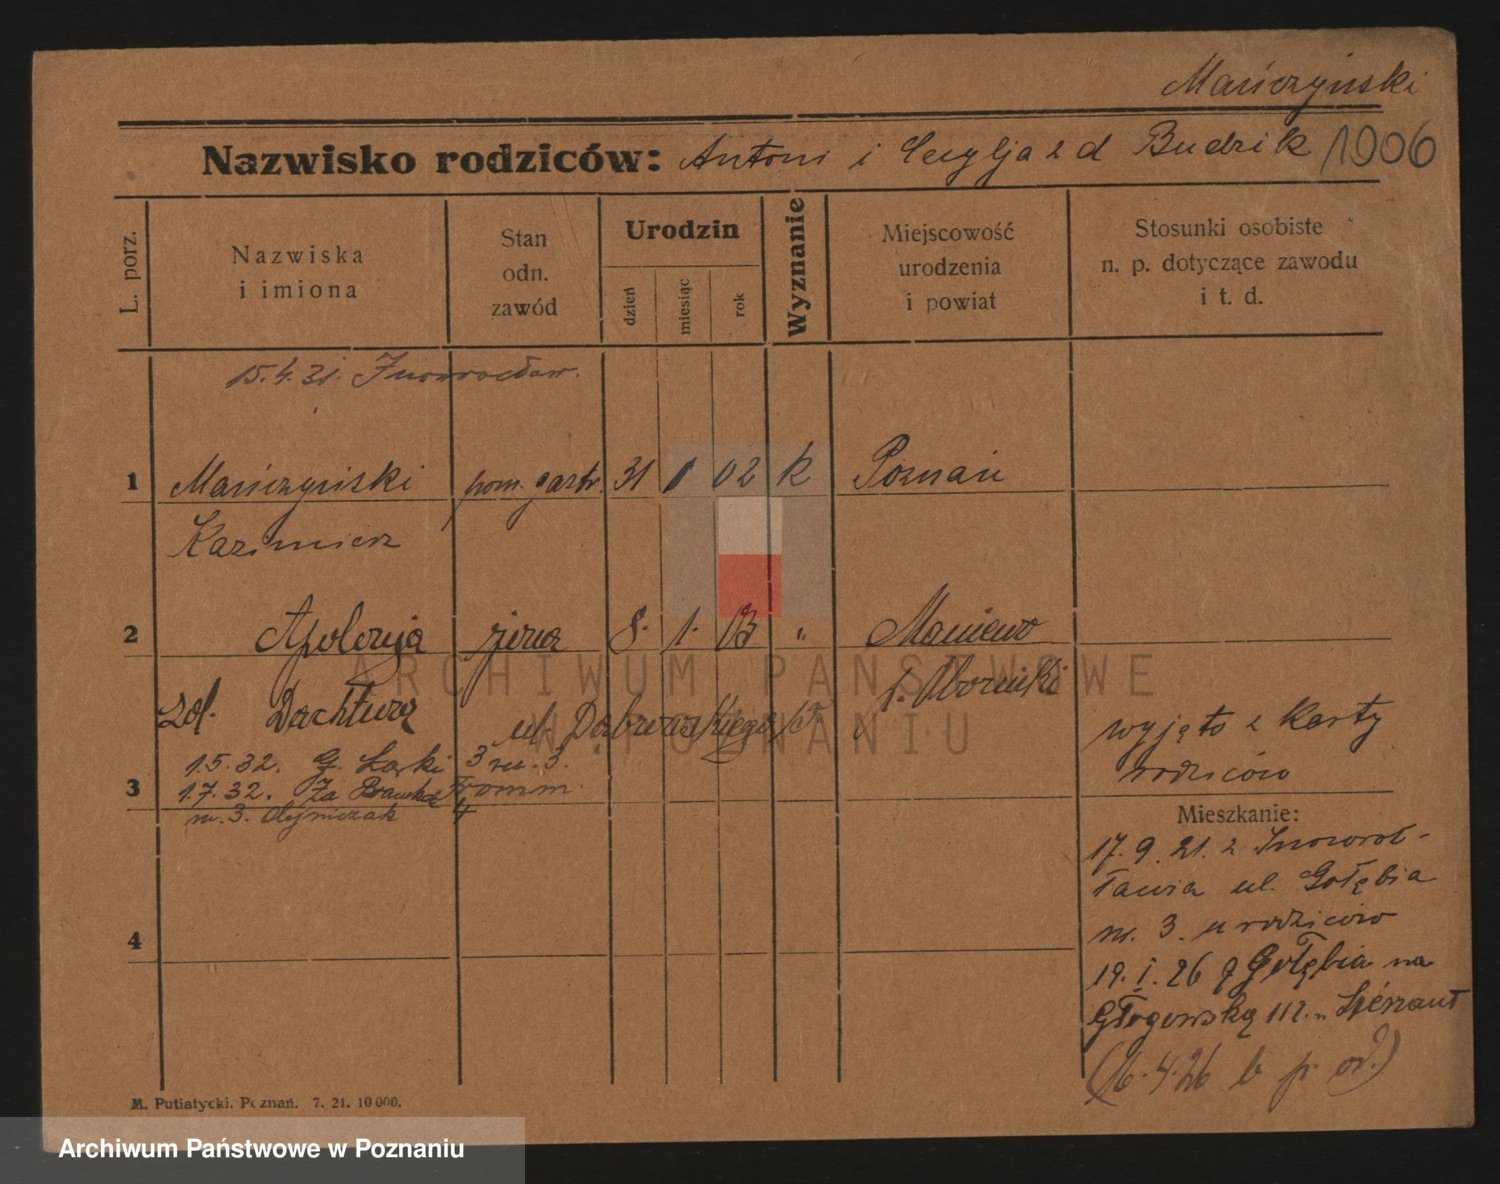 Mańczyński
Nazwisko rodziców: Antoni i Cecylja z d Budzik 1906
L. porz.
Nazwiska
i imiona
Stan
odn.
zawód
Urodzin
dzień
miesiąc
rok
Wyznanie
Miejscowość
urodzenia
i powiat
Stosunki osobiste
n. p. dotyczące zawodu
i t. d.
15.4.31. Inowrocław.
1 Mańczyński pom. gastr. 31 1 02 k Poznań
Kazimierz
2 Apolonja żona 8. 1. 03 " Maniewo
zd. Dachtera p. Oborniki
ul Dabrowskiego
wyjęto z karty
rodziców
1.5.32. G. 3 m. 3.
3 1.7.32. Za Bramką
m. 3. Olejniczak 4
Mieszkanie:
17.9.21. z Inowroc-
ławia ul. Gołębia
nr. 3. u rodziców
4
19.I.26 z Gołębia na
Głogowską 112.
(6.4.26 b. p. od.)
M. Putiatycki. Poznań. 7. 21. 10 000.
ARCHIWUM PAŃSTWOWE
W POZNANIU
Archiwum Państwowe w Poznaniu